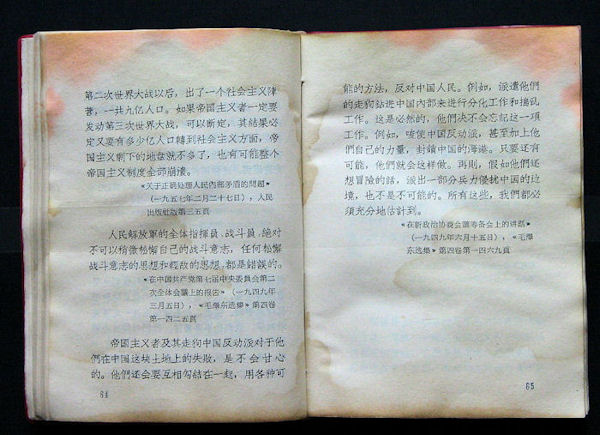 第二次世界大战以后，出了一个社会主义陣
营，一共九亿人口。如果帝国主义者一定要
发动第三次世界大战，可以断定，其結果必
定又要有多少亿人口轉到社会主义方面，帝
国主义剩下的地盘就不多了，也有可能整个
帝国主义制度全部崩潰。
《关于正确处理人民內部矛盾的問題》
（一九五七年二月二十七日），人民
出版社版第三五頁
人民解放軍的全体指揮員、战斗員，絕对
不可以稍微松懈自己的战斗意志，任何松懈
战斗意志的思想和輕敌的思想，都是錯誤的。
《在中国共产党第七届中央委員会第二
次全体会議上的报告》（一九四九年
三月五日），《毛澤东选集》第四卷
第一四二五頁
帝国主义者及其走狗中国反动派对于他
們在中国这块土地上的失敗，是不会甘心
的。他們还会要互相勾結在一起，用各种可
64
能的方法，反对中国人民。例如，派遣他們
的走狗钻进中国內部来进行分化工作和搗乱
工作。这是必然的，他們决不会忘記这一項
工作。例如，唆使中国反动派，甚至加上他
們自己的力量，封鎖中国的海港。只要还有
可能，他們就会这样做。再則，假如他們还
想冒险的話，派出一部分兵力侵扰中国的边
境，也不是不可能的。所有这些，我們都必
須充分地估計到。
《在新政治协商会議籌备会上的讲話》
（一九四九年六月十五日），《毛澤
东选集》第四卷第一四六九頁
65